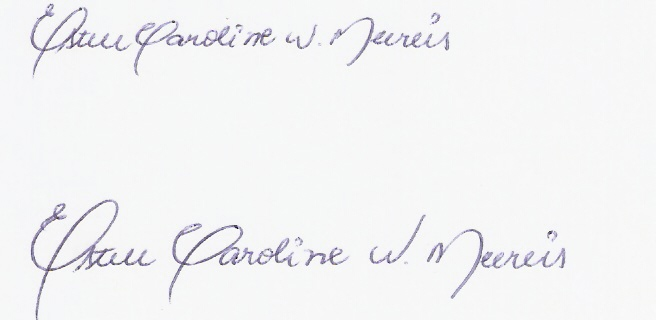 Ester Caroline W. Meireis
Ester Caroline W. Meireis